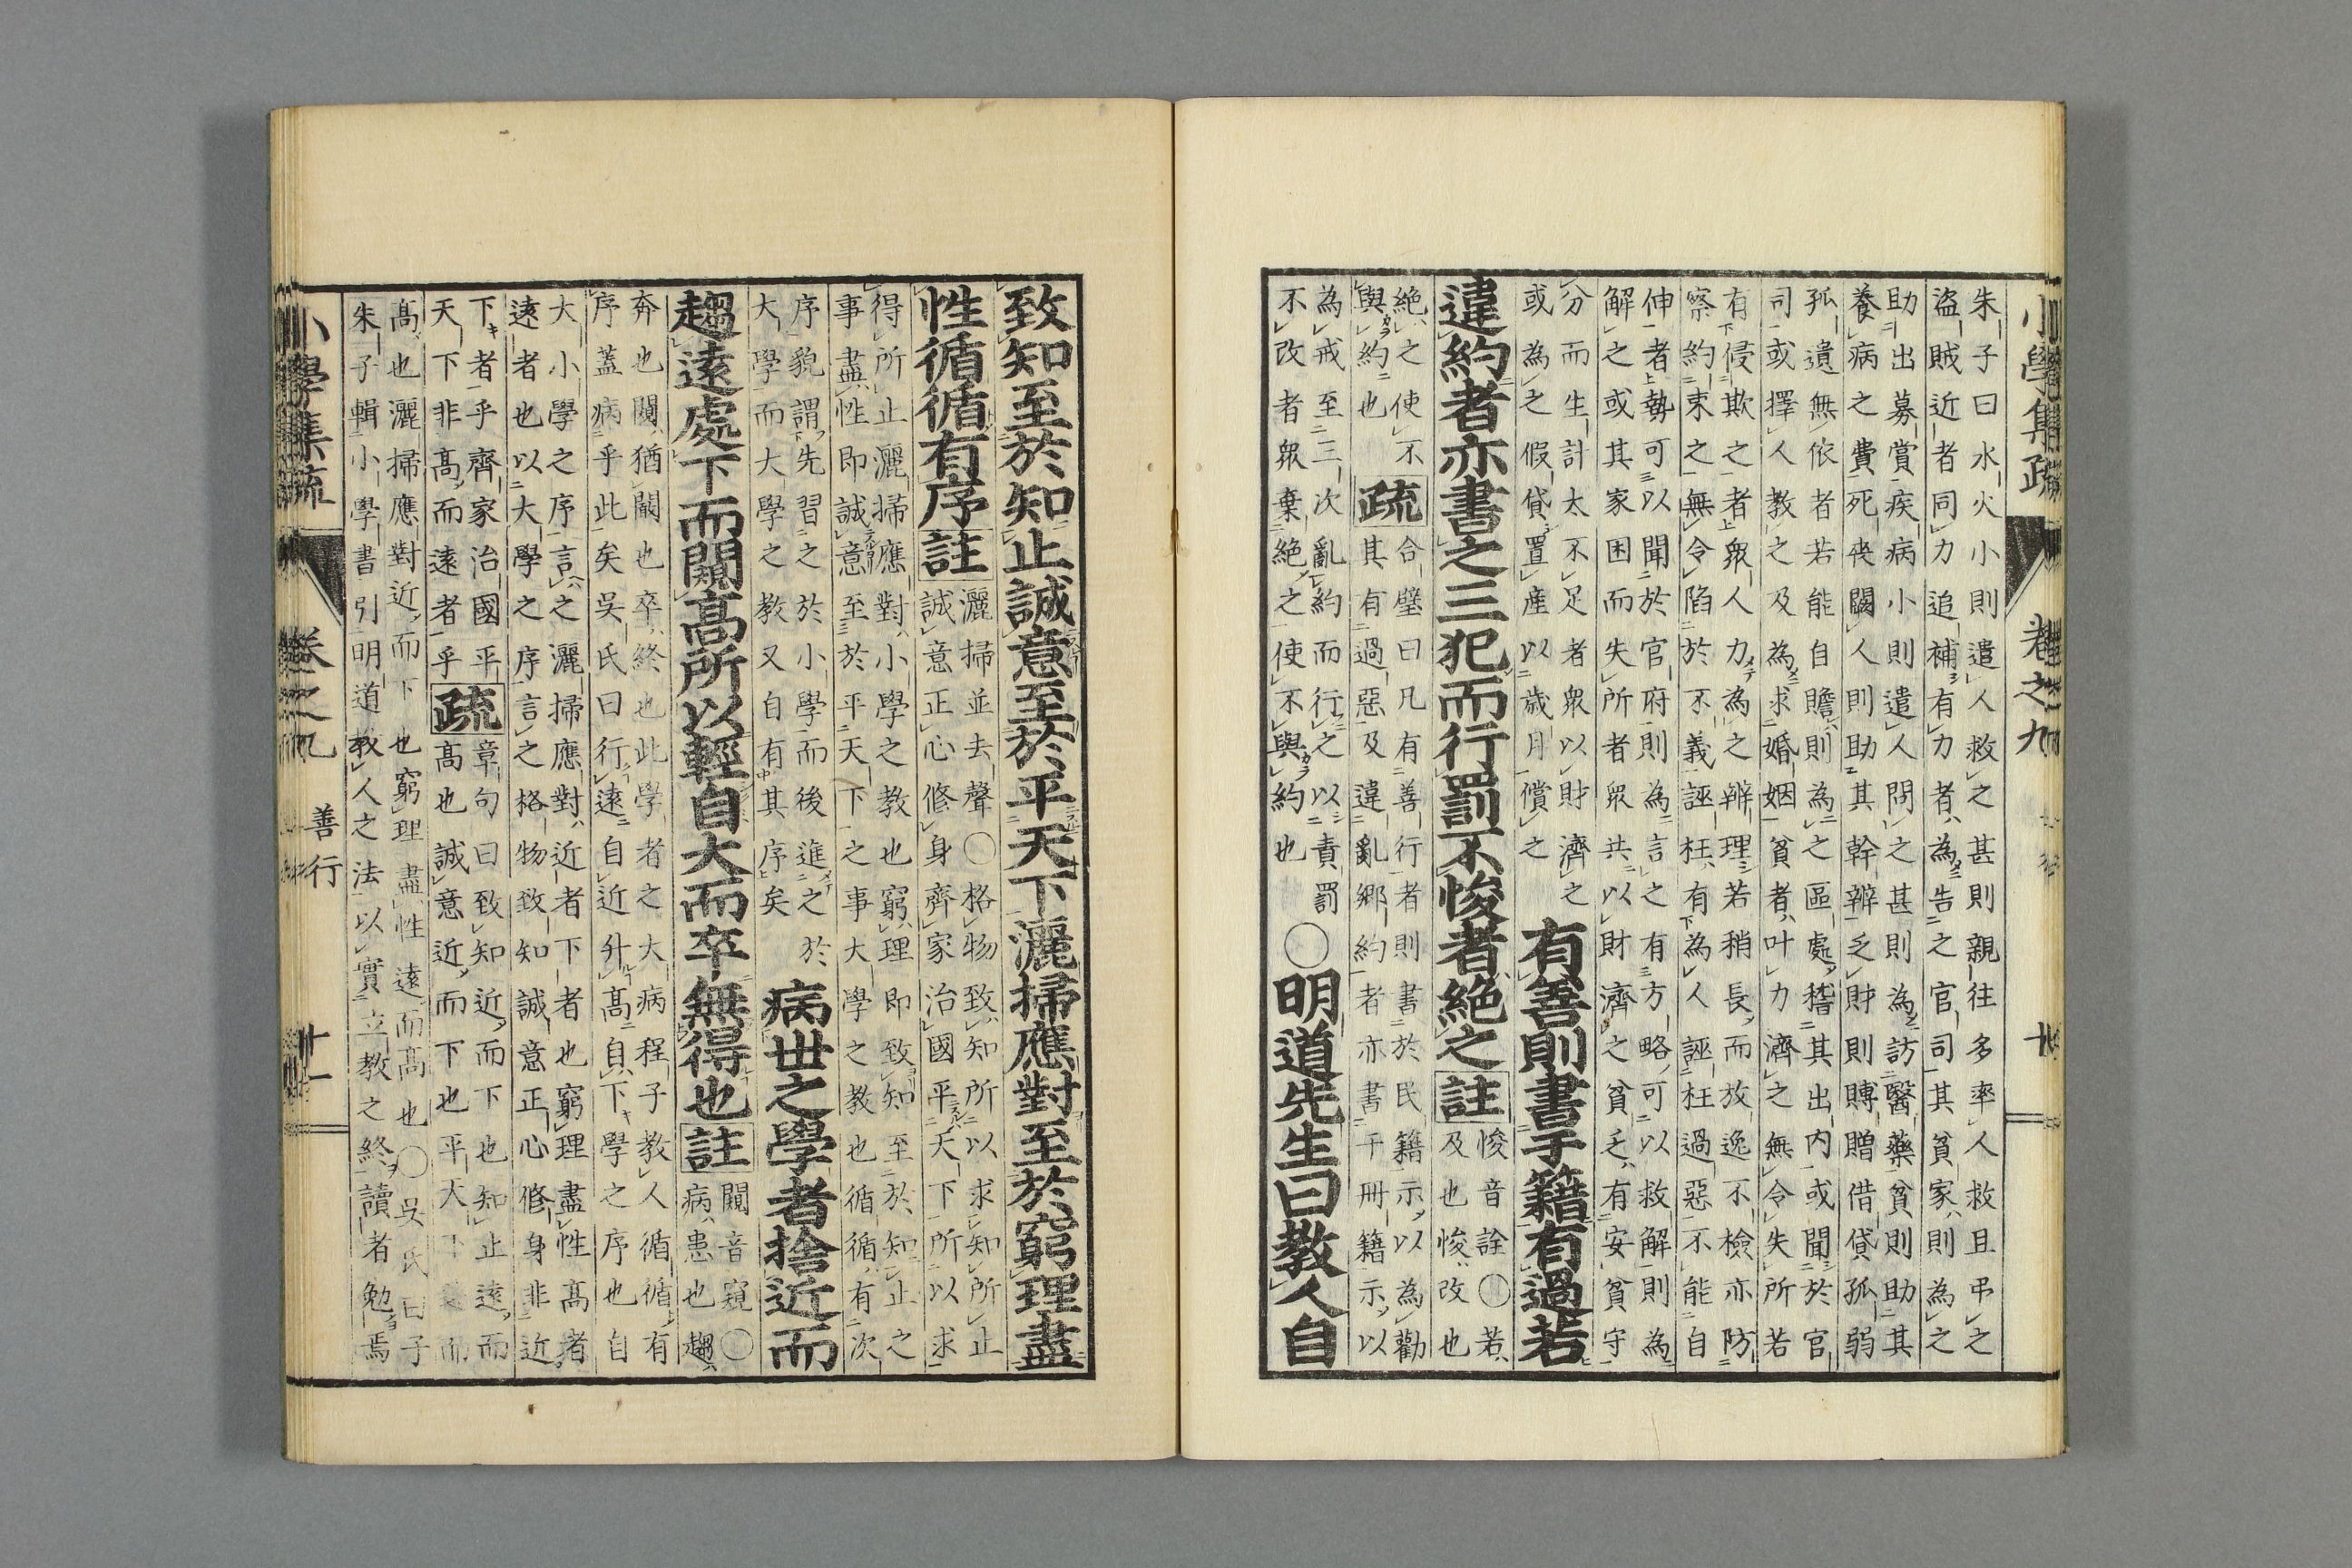 小學集疏 卷之九
朱子曰水火小則遣人救之甚則親往多率人救且弔之
盜賊近者同力追補有力者為告之官司其貧家則為之
助出募賞疾病小則遣人問之甚則為訪醫藥貧則助其
養病之費死喪闕人則助其幹辦乏財則賻贈借貸孤弱
孤遺無依者若能自贍則為之區處稽其出內或聞於官
司或擇人教之及為求婚姻貧者叶力濟之無令失所若
有侵欺之者眾人力為之辦理若稍長而放逸不檢亦防
察約束之無令陷於不義誣枉有為人誣枉過惡不能自
伸者勢可以聞於官府則為言之有方略可以救解則為
解之或其家困而失所者眾共以財濟之貧乏有安貧守
分而生計太不足者眾以財濟之
或為之假貸置產以歲月償之
有善則書于籍有過若
違約者亦書之三犯而行罰不悛者絕之註
悛音詮○若
及也悛改也
絕之使不
與約也
疏
合璧曰凡有善行者則書於民籍示以為勸
其有過惡及違亂鄉約者亦書于冊籍示以
為戒至三次亂約而行之以責罰
不改者眾棄絕之使不與約也
○明道先生曰教人自
致知至於知止誠意至於平天下灑掃應對至於窮理盡
性循循有序註
灑掃並去聲○格物致知所以求知所止
誠意正心修身齊家治國平天下所以求
得所止灑掃應對小學之教也窮理即致知至於知止之
事盡性即誠意至於平天下之事大學之教也循循有次
序貌謂先習之於小學而後進之於
大學而大學之教又自有其序矣
病世之學者捨近而
趨遠處下而闚高所以輕自大而卒無得也註
闚音窺○
病患也趨
奔也闚猶闞也卒終也此學者之大病程子教人循循有
序蓋病乎此矣吳氏曰行遠自近升高自下學之序也自
大小學之序言之灑掃應對近者下者也窮理盡性高者
遠者也以大學之序言之格物致知誠意正心修身非近
下者乎齊家治國平
天下非高而遠者乎
疏
章句曰致知近而下也知止遠而
高也誠意近而下也平天下遠而
高也灑掃應對近而下也窮理盡性遠而高也○吳氏曰子
朱子輯小學書引明道教人之法以實立教之終讀者勉焉
小學集疏 卷之九 善行 十一